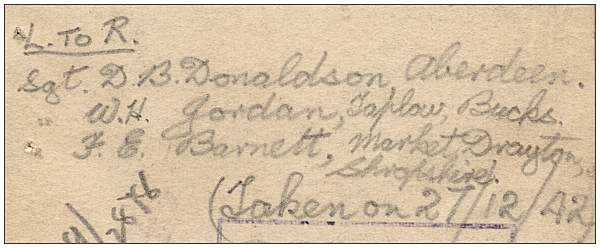 L. TO R.
Sgt. D. B. Donaldson, Aberdeen.
" W. H. Jordan, Taplow, Bucks.
" F. E. Barnett, Market Drayton,
Shropshire.
(Taken on 27/12/42